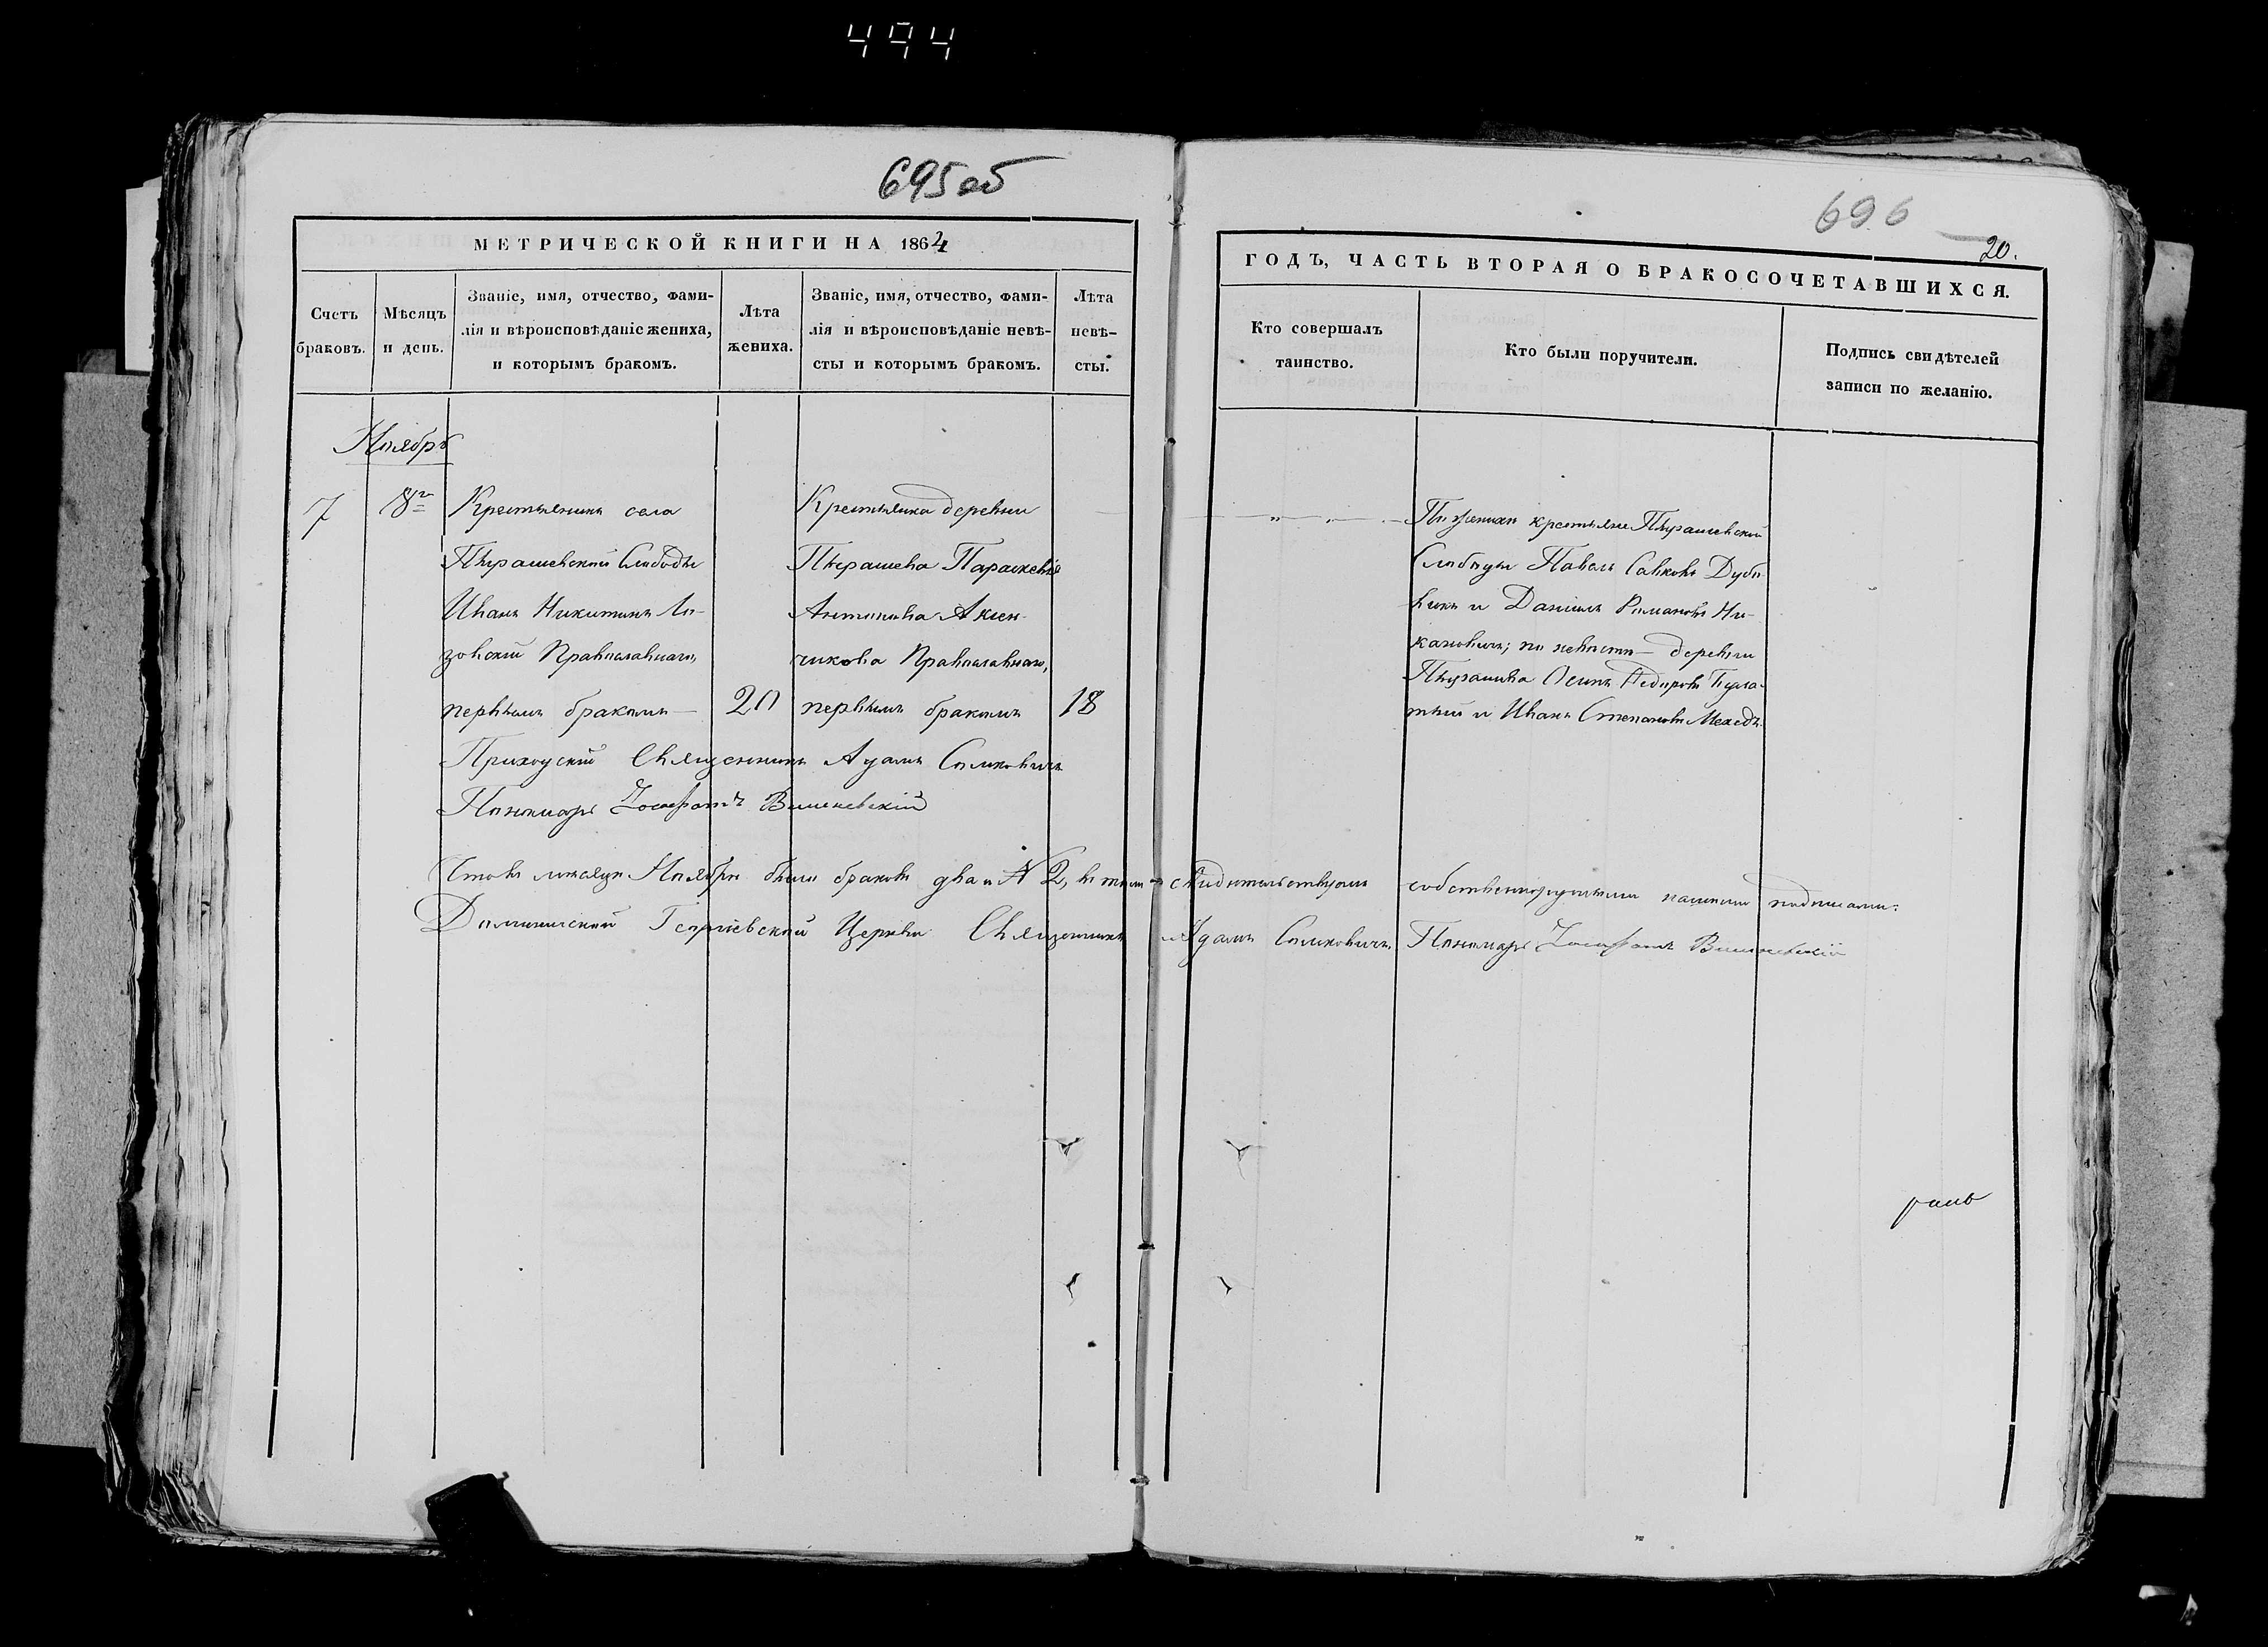 494
695об
696
20.
МЕТРИЧЕСКОЙ КНИГИ НА 1864
ГОДЪ, ЧАСТЬ ВТОРАЯ О БРАКОСОЧЕТАВШИХСЯ.
Счетъ
браковъ.
Мѣсяцъ
и день.
Званіе, имя, отчество, фами-
лія и вѣроисповѣданіе жениха,
и которымъ бракомъ.
Лѣта
жениха.
Званіе, имя, отчество, фами-
лія и вѣроисповѣданіе невѣ-
сты и которымъ бракомъ.
Лѣта
невѣ-
сты.
Кто совершалъ
таинство.
Кто были поручители.
Подпись свидѣтелей
записи по желанію.
Ноябрь
7
8го
Крестьянинъ села
Пырашевской Слободы
Иванъ Никитинъ Ло-
зовскій Православнаго,
первымъ бракомъ —
20
Крестьянка деревни
Пырашева Параскевія
Антонова Аксен-
чикова Православнаго,
первымъ бракомъ
18
По женихѣ крестьяне Пырашевской
Слободы Павелъ Савковъ Дубо-
викъ и Даніилъ Романовъ Ни-
кановичъ; по невѣстѣ — деревни
Пырашева Осипъ Ѳедоровъ
и Иванъ Степановъ
Приходскій Священникъ Адамъ Самковичъ
Пономарь Іосафатъ Вишневскій
мѣсяцѣ Ноябрѣ было браковъ два № 2, въ томъ свидѣтельствуемъ собственноручными нашими подписами:
Георгіевской Церкви Священникъ Адамъ Самковичъ Пономарь Іосафатъ Вишневскій